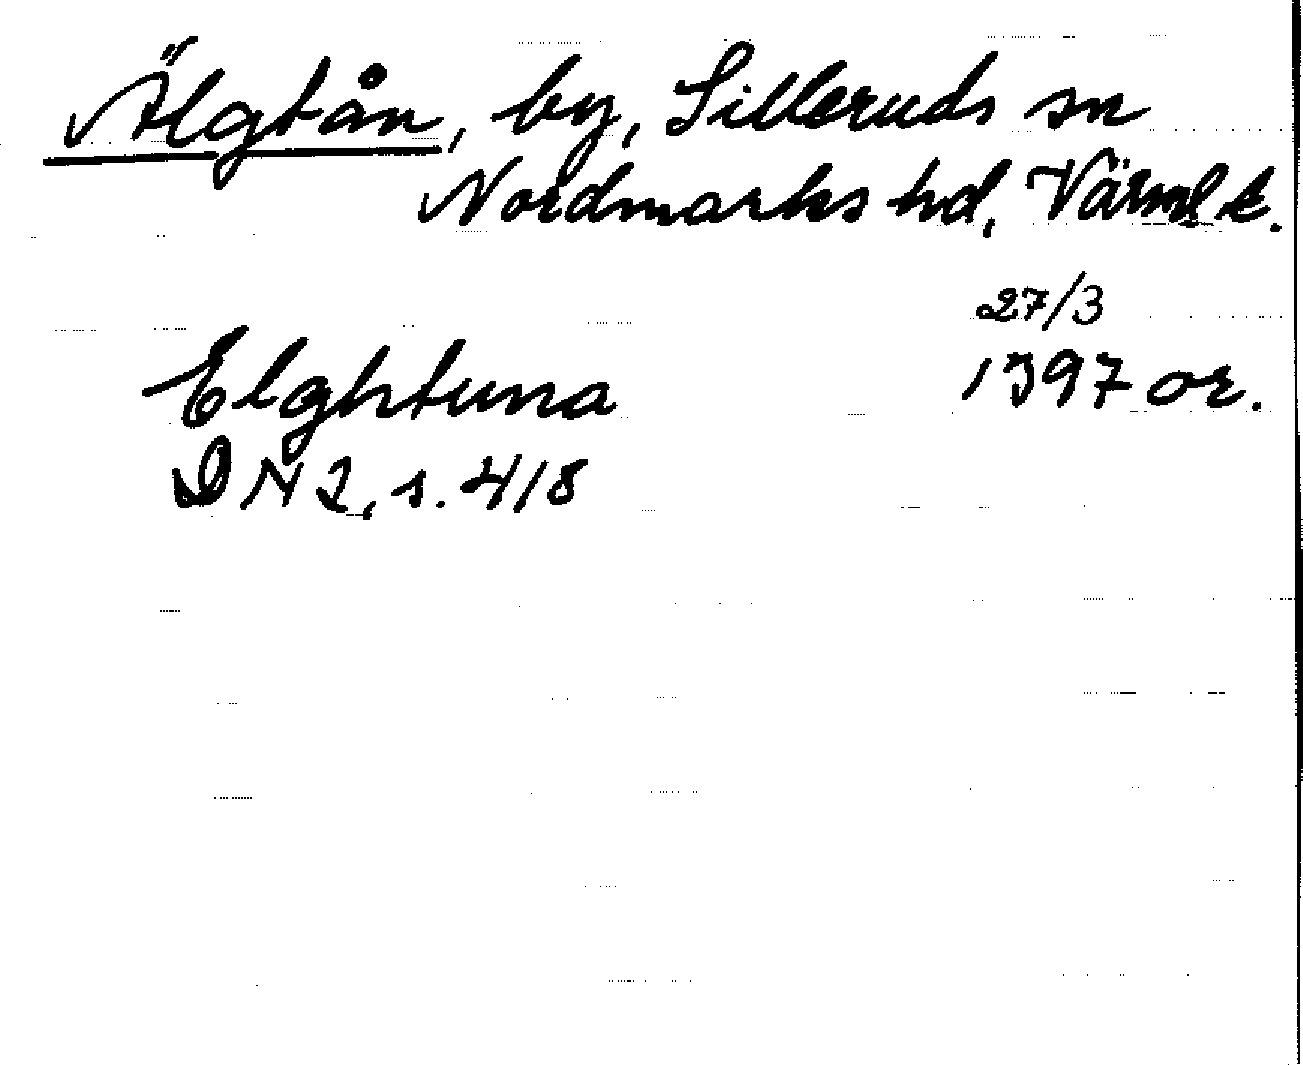 Älgtån, by, Silleruds sn
Nordmarks hd, Värml k.
27/3
Elghtuna 1397 or.
DN 2, s. 418